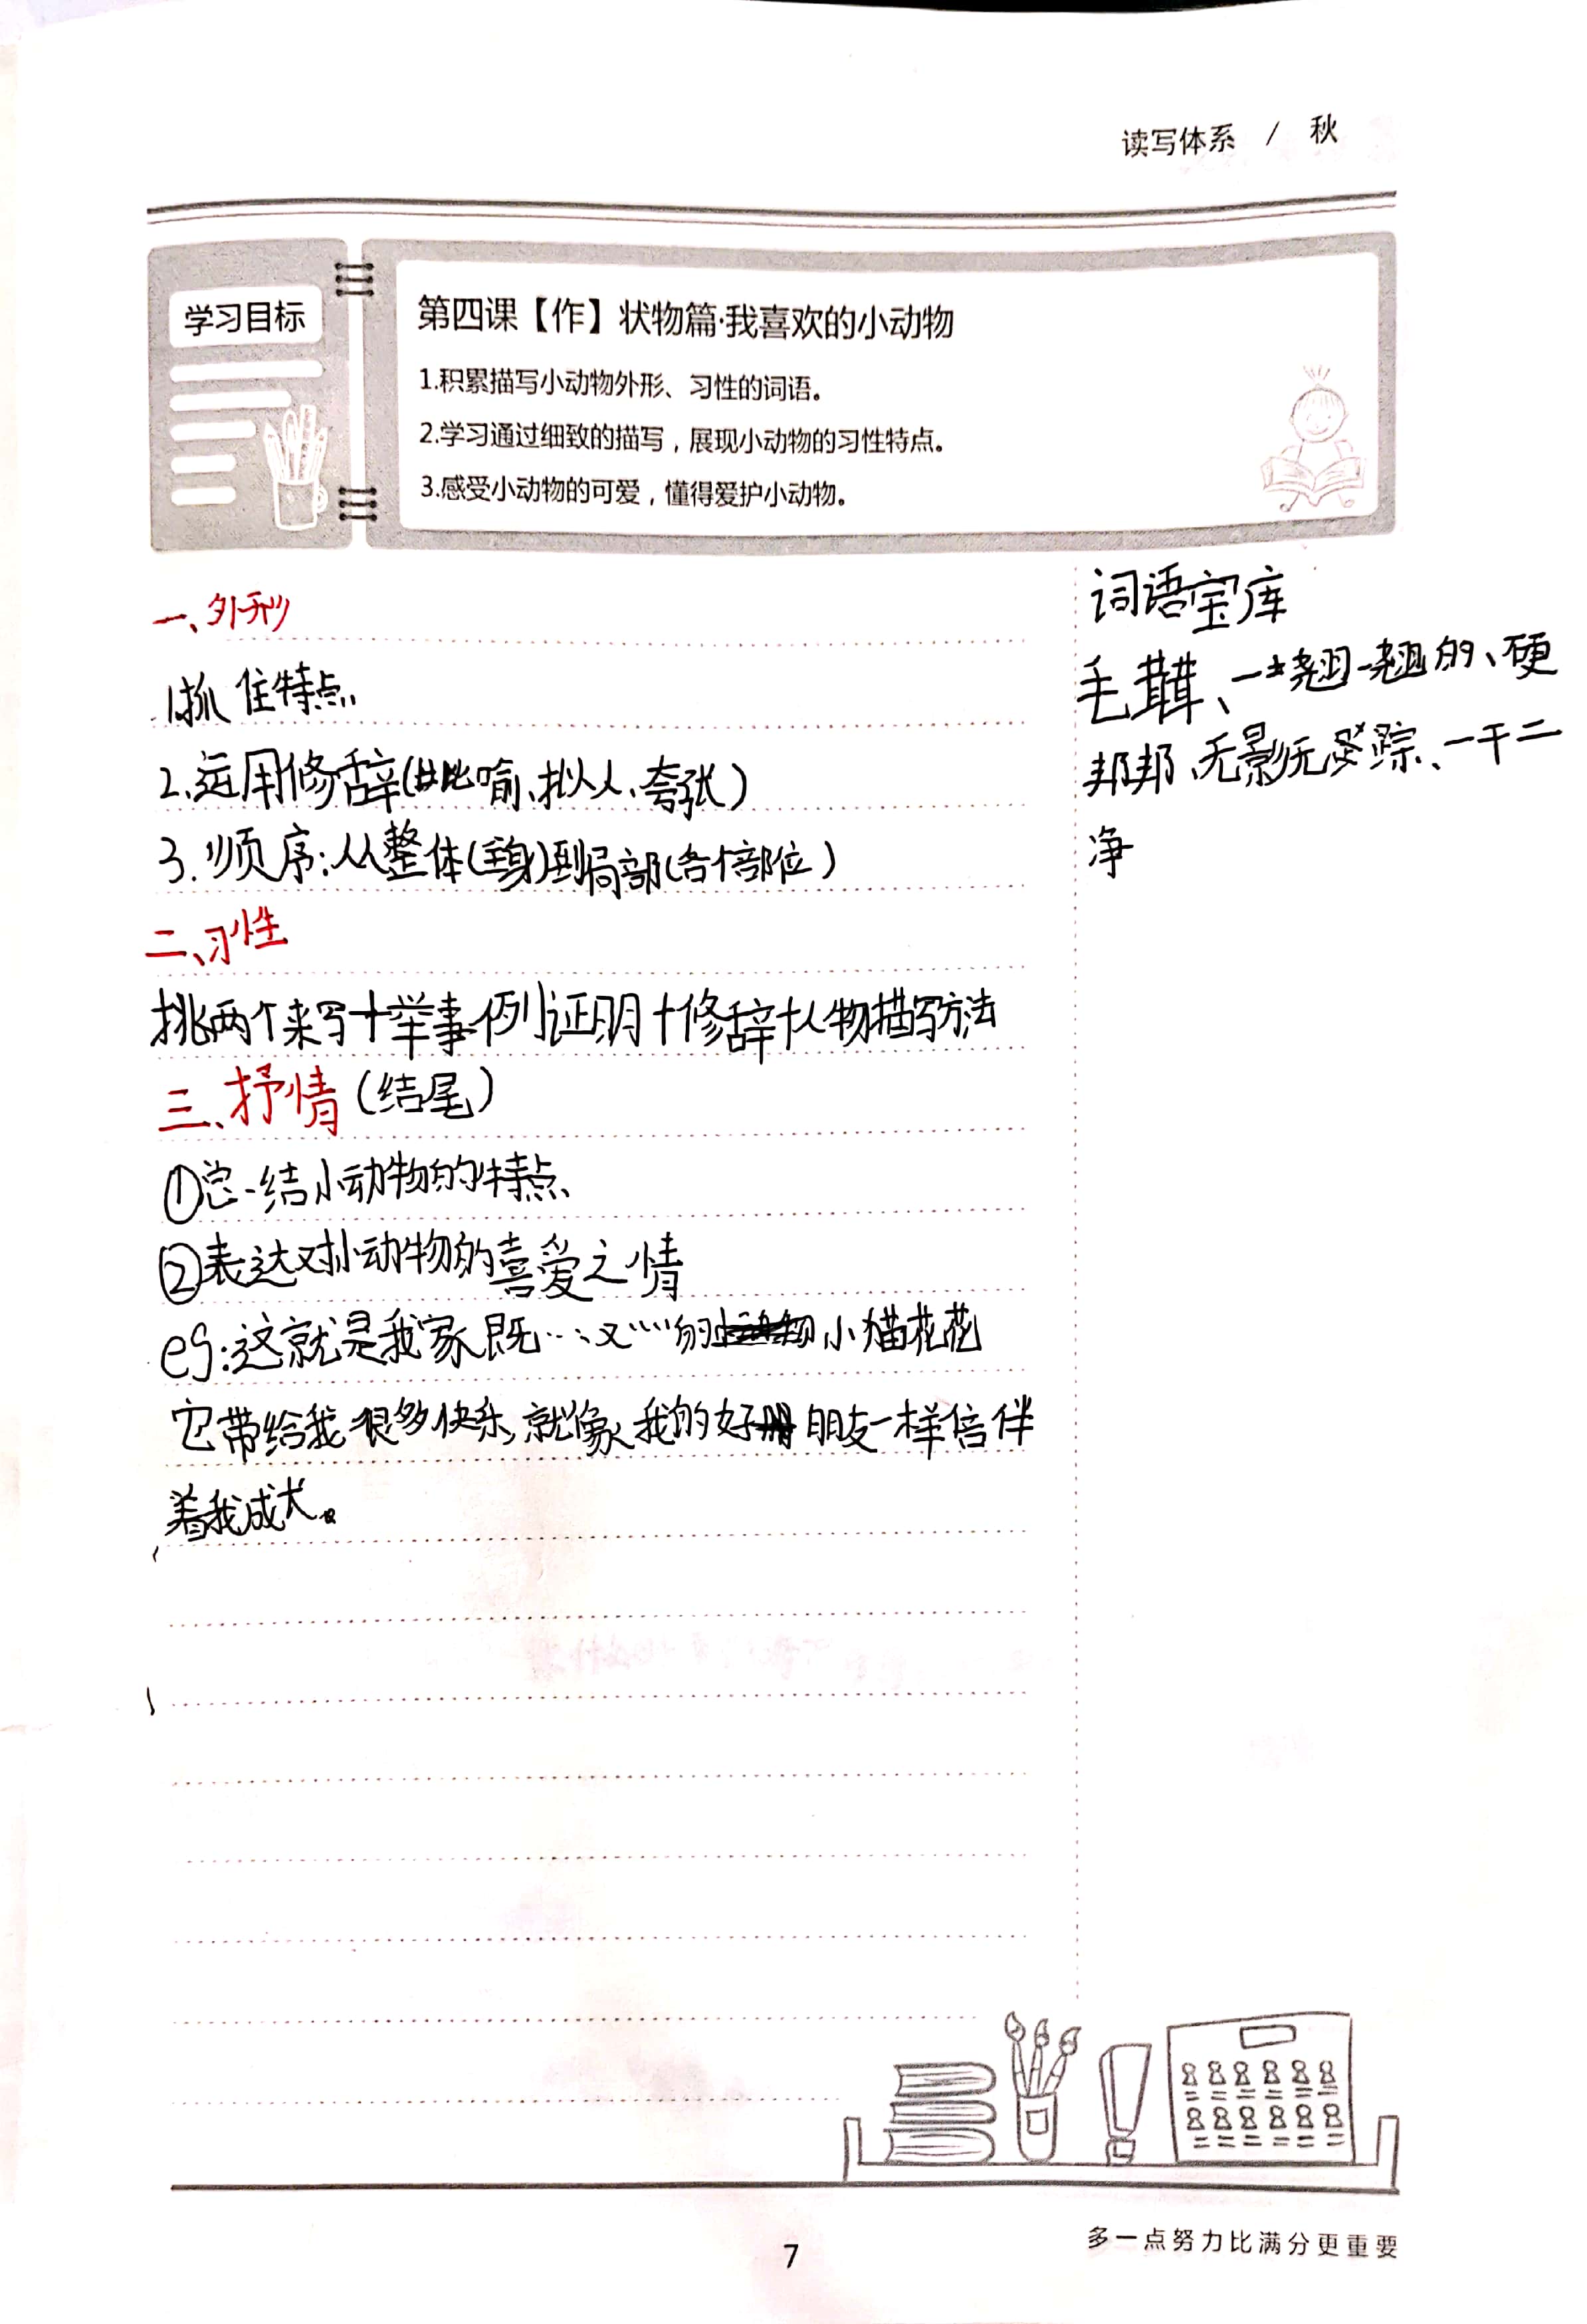 读写体系 / 秋
学习目标
第四课【作】状物篇·我喜欢的小动物
1.积累描写小动物外形、习性的词语。
2.学习通过细致的描写，展现小动物的习性特点。
3.感受小动物的可爱，懂得爱护小动物。
一、外形
1.抓住特点
2.运用修辞(比喻、拟人、夸张)
3.顺序:从整体(全身)到局部(各个部位)
二、习性
挑两个来写+举事例证明+修辞+人物描写方法
三、抒情(结尾)
①总结小动物的特点
②表达对小动物的喜爱之情
eg:这就是我家既……又……的小猫花花
它带给我很多快乐,就像我的好朋友一样倍伴
着我成长。
词语宝库
毛茸茸、一翘一翘的、硬
邦邦、无影无踪、一干二
净
7
多一点努力比满分更重要